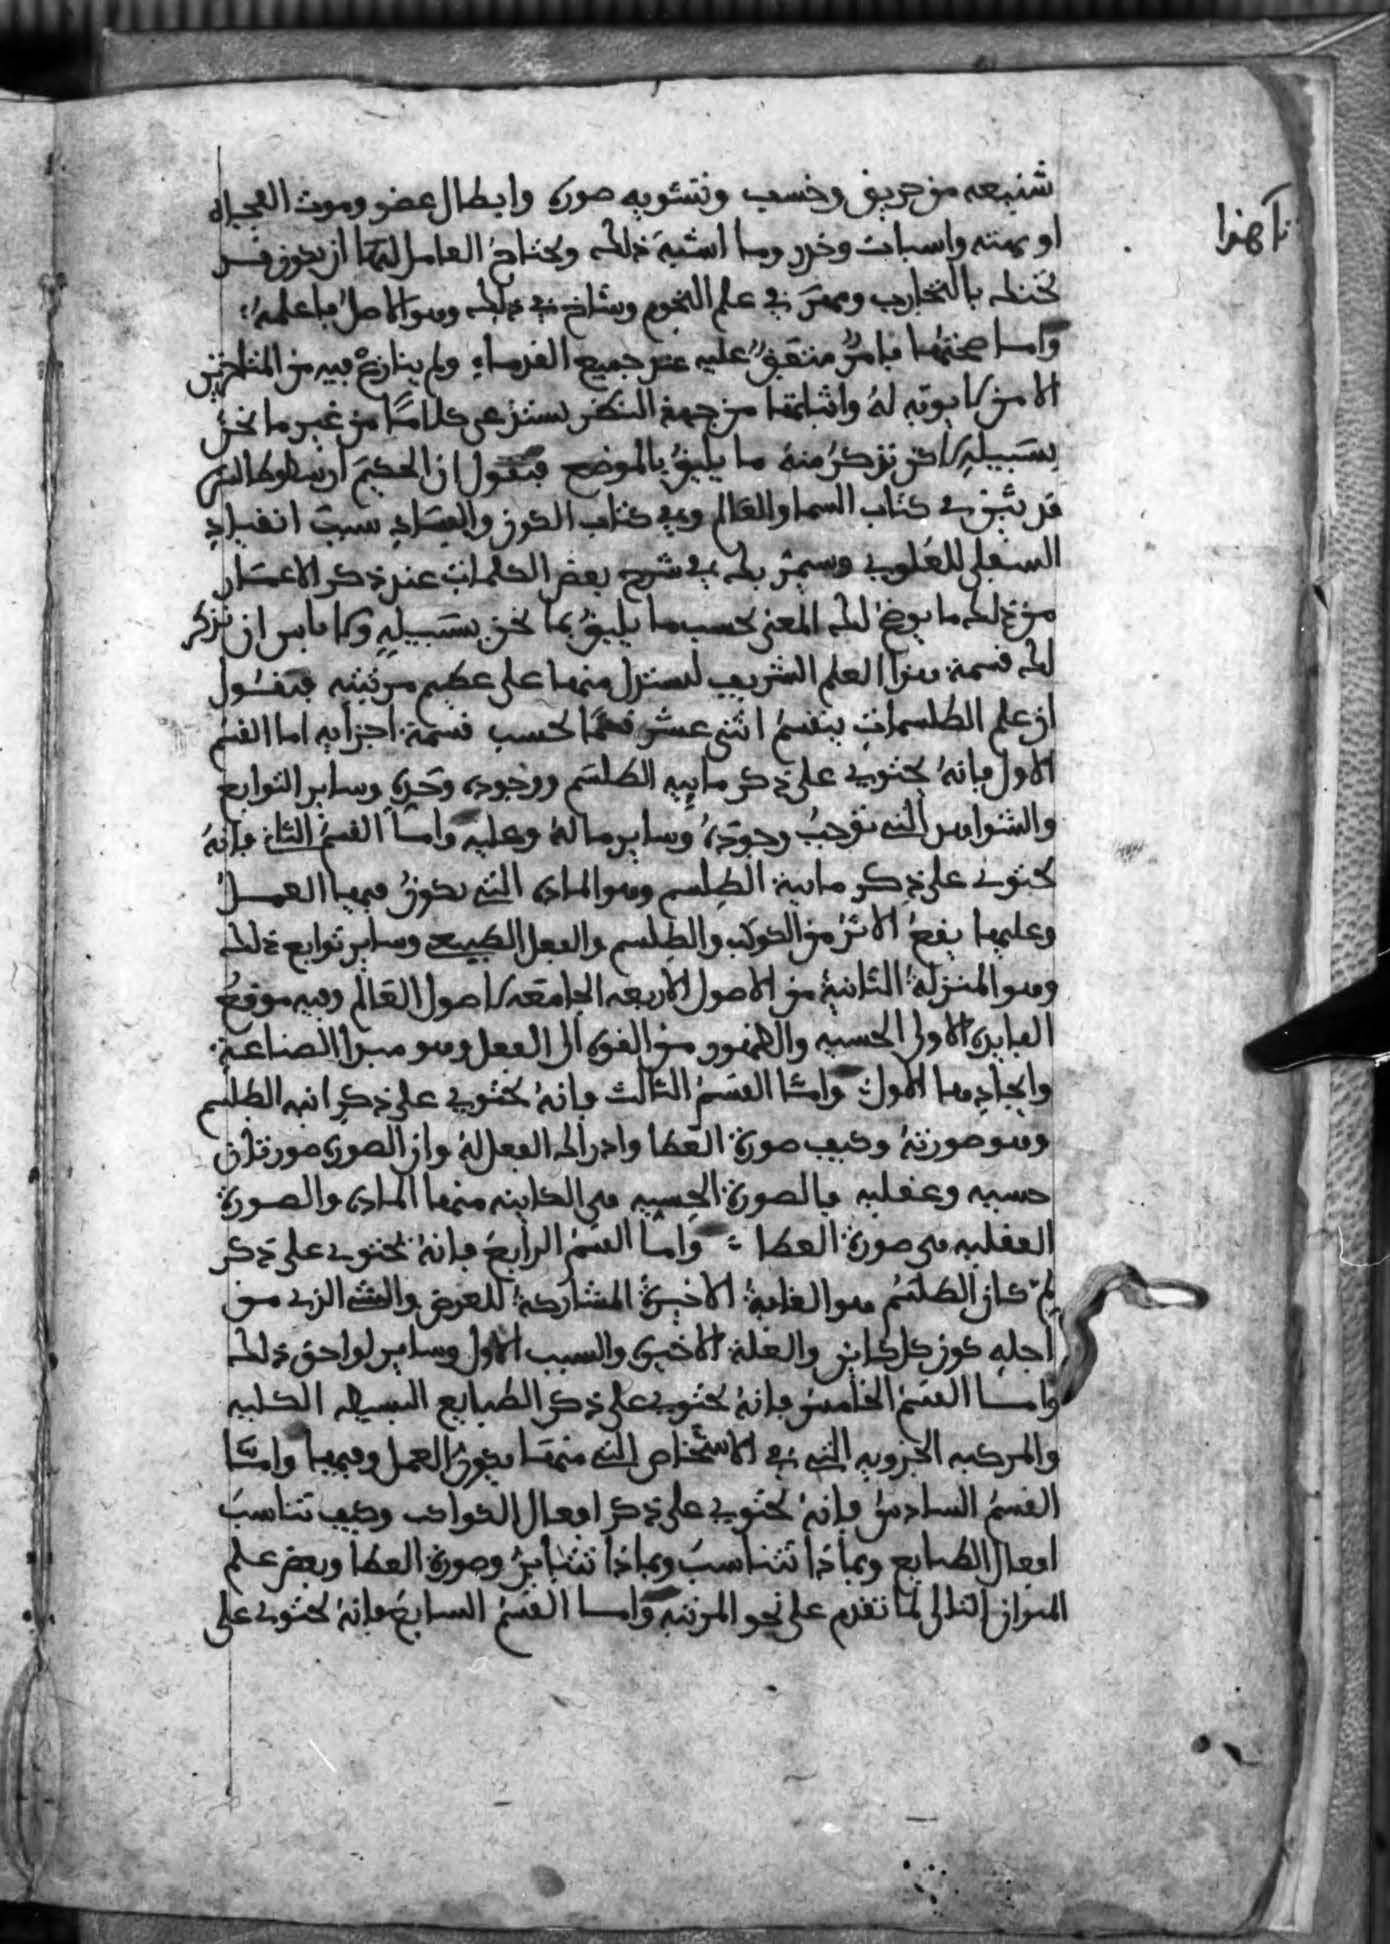 شنيعه من حريق وخسف وتشويه صورة وابطال عضو وموت الفجاه
او بهته واسبات وخدر وما اشبه ذلك ويحتاج العامل لها ان يكون قد
تحنك بالتجارب ومهر في علم النجوم وشاخ في ذلك وهو الاصل فاعلمه
واما صحتها فامر متفق عليه عند جميع القدماء ولم ينازع فيه من المتاخرين
الا من لا يوبه له واثباتها من جهة النظر يستدعي كلاما من غير ما نحن
بسبيله لاكن نذكر منه ما يليق بالموضع فنقول ان الحكيم ارسطوطاليس
قد بين في كتاب السما والعالم وفي كتاب الكون والفساد سبب انقياد
السفلي للعلوي وسيمر بك في شرح بعض الكلمات عند ذكر الاعمار
من ذلك ما يوضح لك المعنى بحسب ما يليق بما نحن بسبيله ولا باس ان نذكر
لك قسمة هذا العلم الشريف لتستدل منها على عظيم مرتبته فنقول
ان علم الطلسمات ينقسم اثني عشر قسما بحسب قسمة اجزايه اما القسم
الاول فانه يحتوي على ذكر ماهية الطلسم ووجوده وحده وساير التوابع
والشواهد التي توجب وجوده وساير ما له وعليه واما القسم الثاني فانه
يحتوي على ذكر ماهية الطلسم وهو المادة التي يكون فيها العمل
وعليها يقع الاثر من الكوكب والطلسم والفعل الطبيعي وساير توابع ذلك
وهو المنزلة الثانية من الاصول الاربعه الجامعه لاصول العالم وفيه موقع
الفايدة الاولى الحسيه والظهور من القوة الى الفعل وهو مبدا الصناعة
وايجادها الاول واما القسم الثالث فانه يحتوي على ذكر انيه الطلسم
وهو صورته وكيف صورة العطا وادراك الفعل له وان الصورة صورتان
حسيه وعقليه فالصورة الحسيه هي الكاينه منها المادة والصورة
العقليه هي صورة العطا واما القسم الرابع فانه يحتوي على ذكر
لم كان الطلسم وهو الغاية الاخيرة المشاركة للغرض والشي الذي من
اجله كون كل كاين والعلة الاخيرة والسبب الاول وساير لواحق ذلك
واما القسم الخامس فانه يحتوي على ذكر الطبايع البسيطه الكليه
والمركبه الجزويه التي في الاشخاص التي منها يكون العمل وفيها واما
القسم السادس فانه يحتوي على ذكر افعال الكواكب وكيف تتناسب
افعال الطبايع وبماذا تتناسب وبماذا تتباين وصورة العطا وبعض علم
الميزان التالي لما تقدم على نحو المرتبه واما القسم السابع فانه يحتوي على